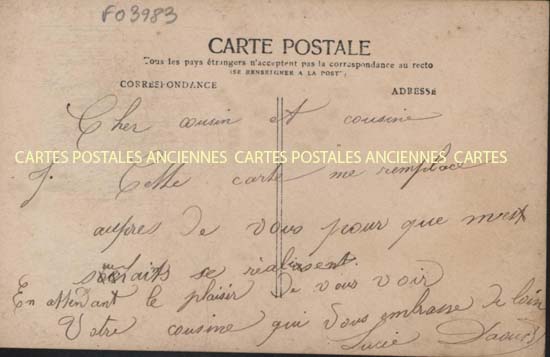 FO3983
CARTE POSTALE
Tous les pays étrangers n'acceptent pas la correspondance au recto
(SE RENSEIGNER A LA POSTE)
CORRESPONDANCE ADRESSE
Cher cousin et cousine
CARTES POSTALES ANCIENNES CARTES POSTALES ANCIENNES CARTES
Cette carte me remplace
aupres de vous pour que
souhaits se réalisent.
En attendant le plaisir de vous voir
Votre cousine qui vous embrasse de loin
Lucie